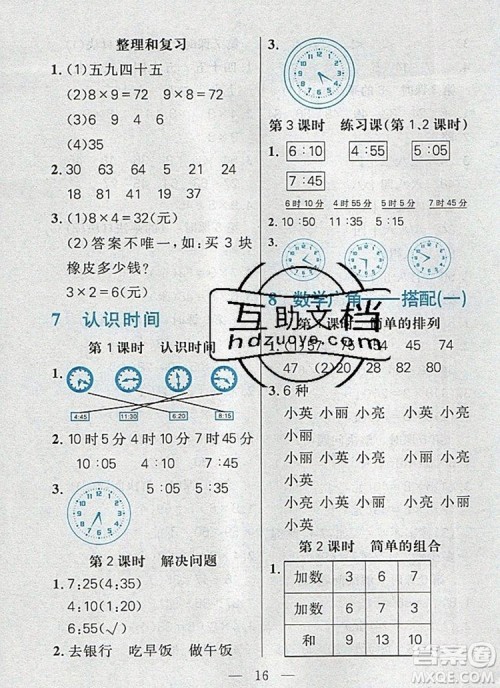 整理和复习
1. (1)五九四十五
(2)8×9=72 9×8=72
(3)6 9 4
(4)35
2. 30 63 64 15 21 24
18 81 19 67 47 34
3. (1)8×4=32(元)
(2)答案不唯一,如:买3块
橡皮多少钱?
3×2=6(元)
7 认识时间
第1课时 认识时间
1.
4:45 11:30 6:20 8:15
2. 10时5分 4时5分 7时45分
10:05 4:05 7:45
3. 5:05 5:35
第2课时 解决问题
1. 7:25(4:35)
4:10(5:30)
6:55(√)
2. 去银行 吃早饭 做午饭
3.
第3课时 练习课(第1、2课时)
1. 6:10 4:55 5:05
7:45
6时10分 4时55分 5时5分 7时45分
2. 10:50
3.
8 数学广角——搭配(一)
第1课时 简单的排列
1. (1)57 74
47 (2) 23 78 82
3. 6种
小英 小丽 小亮 小英 小亮
小丽
小丽 小英 小亮 小丽 小亮
小英
小亮 小英 小丽 小亮 小丽
小英
第2课时 简单的组合
1.
加数 3 6 7
加数 6 7 3
和 9 13 10
16
互助文档
hdzuoye.com
答案圈
MXQE.COM